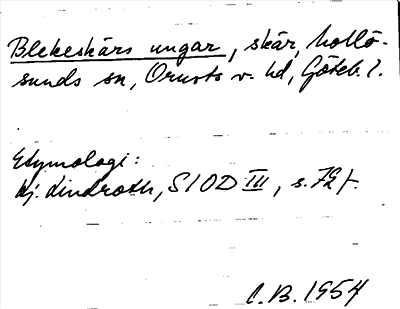 Blekeskärs ungar, skär, Mollö-
sunds sn, Orusts v. hd, Göteb. l.
Etymologi:
Hj. Lindroth, SIOD III, s. 72 f.
C. B. 1954